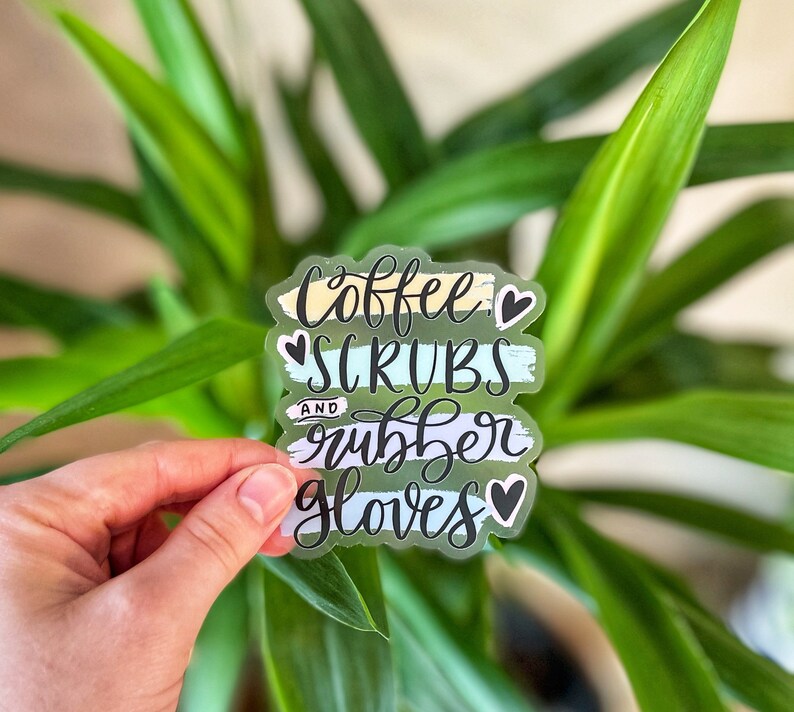 Coffee
SCRUBS
AND
rubber
gloves